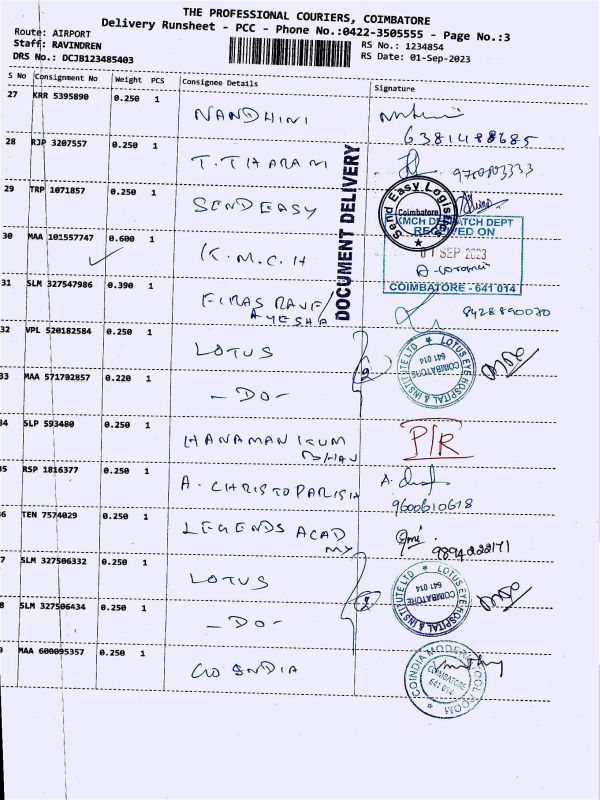 THE PROFESSIONAL COURIERS, COIMBATORE
Delivery Runsheet - PCC - Phone No.:0422-3505555 - Page No.:3
Route: AIRPORT
Staff: RAVINDREN
DRS No.: DCJB123485403
RS No.: 1234854
RS Date: 01-Sep-2023
S No Consignment No Weight PCS Consignee Details Signature
27 KRR 5395890 0.250 1 NANDHINI
6381488685
28 RJP 3207557 0.250 1 T. THARAM
29 TRP 1071857 0.250 1 SENDEASY
Easy Logistics
Coimbatore
30 MAA 101557747 0.600 1 K.M.C.H
KMCH DESPATCH DEPT
RECEIVED ON
01 SEP 2023
COIMBATORE - 641 014
DOCUMENT DELIVERY
31 SLM 327547986 0.390 1 FIRAS RAVE/
AYESHA
8428890070
32 VPL 520182584 0.250 1 LOTUS
LOTUS EYE HOSPITAL & INSTITUTE LTD
COIMBATORE
641 014
33 MAA 571702857 0.220 1 - DO -
34 SLP 593480 0.250 1 HANAMAN KUM
P/R
35 RSP 1816377 0.250 1 A. CHRISTOPARISH
9600610618
36 TEN 7574029 0.250 1 LEGENDS ACAD
MY
9894222171
37 SLM 327506332 0.250 1 LOTUS
LOTUS EYE HOSPITAL & INSTITUTE LTD
COIMBATORE
641 014
38 SLM 327506434 0.250 1 - DO -
39 MAA 600095357 0.250 1 CO INDIA
COIMBATORE
641 014